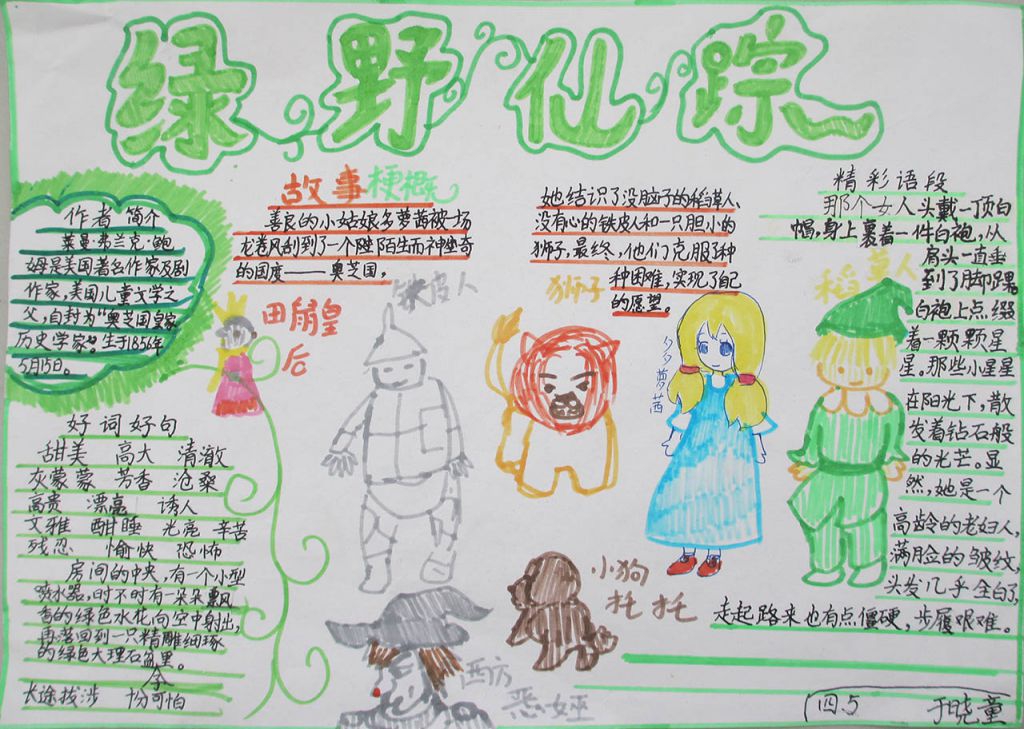 绿野仙踪
作者简介
莱曼·弗兰克·鲍
姆是美国著名作家及剧
作家,美国儿童文学之
父,自封为"奥芝国皇家
历史学家"。生于1856年
5月15日。
好词好句
甜美 高大 清澈
灰蒙蒙 芳香 沧桑
高贵 漂亮 诱人
文雅 酣睡 光亮 辛苦
残忍 愉快 恐怖
房间的中央,有一个小型
喷水器,时不时有一朵朵飘
香的绿色水花向空中射出,
再落回到一只精雕细琢
的绿色大理石盆里。
长途拔涉 可怕
故事梗概
善良的小姑娘多萝茜被一场
龙卷风刮到了一个陌生而神奇
的国度——奥芝国,
她结识了没脑子的稻草人、
没有心的铁皮人和一只胆小的
狮子,最终,他们克服了种
种困难,实现了自己
的愿望。
田鼠皇
后
铁皮人
狮子
多萝茜
稻草人
小狗
托托
西方
恶女巫
精彩语段
那个女人头戴一顶白
帽,身上裹着一件白袍,从
肩头一直垂
到了脚踝。
白袍上点缀
着一颗颗星
星。那些小星星
在阳光下,散
发着钻石般
的光芒。显
然,她是一个
高龄的老妇人,
满脸的皱纹,
头发几乎全白了,
走起路来也有点僵硬,步履艰难。
四.5 于晓童